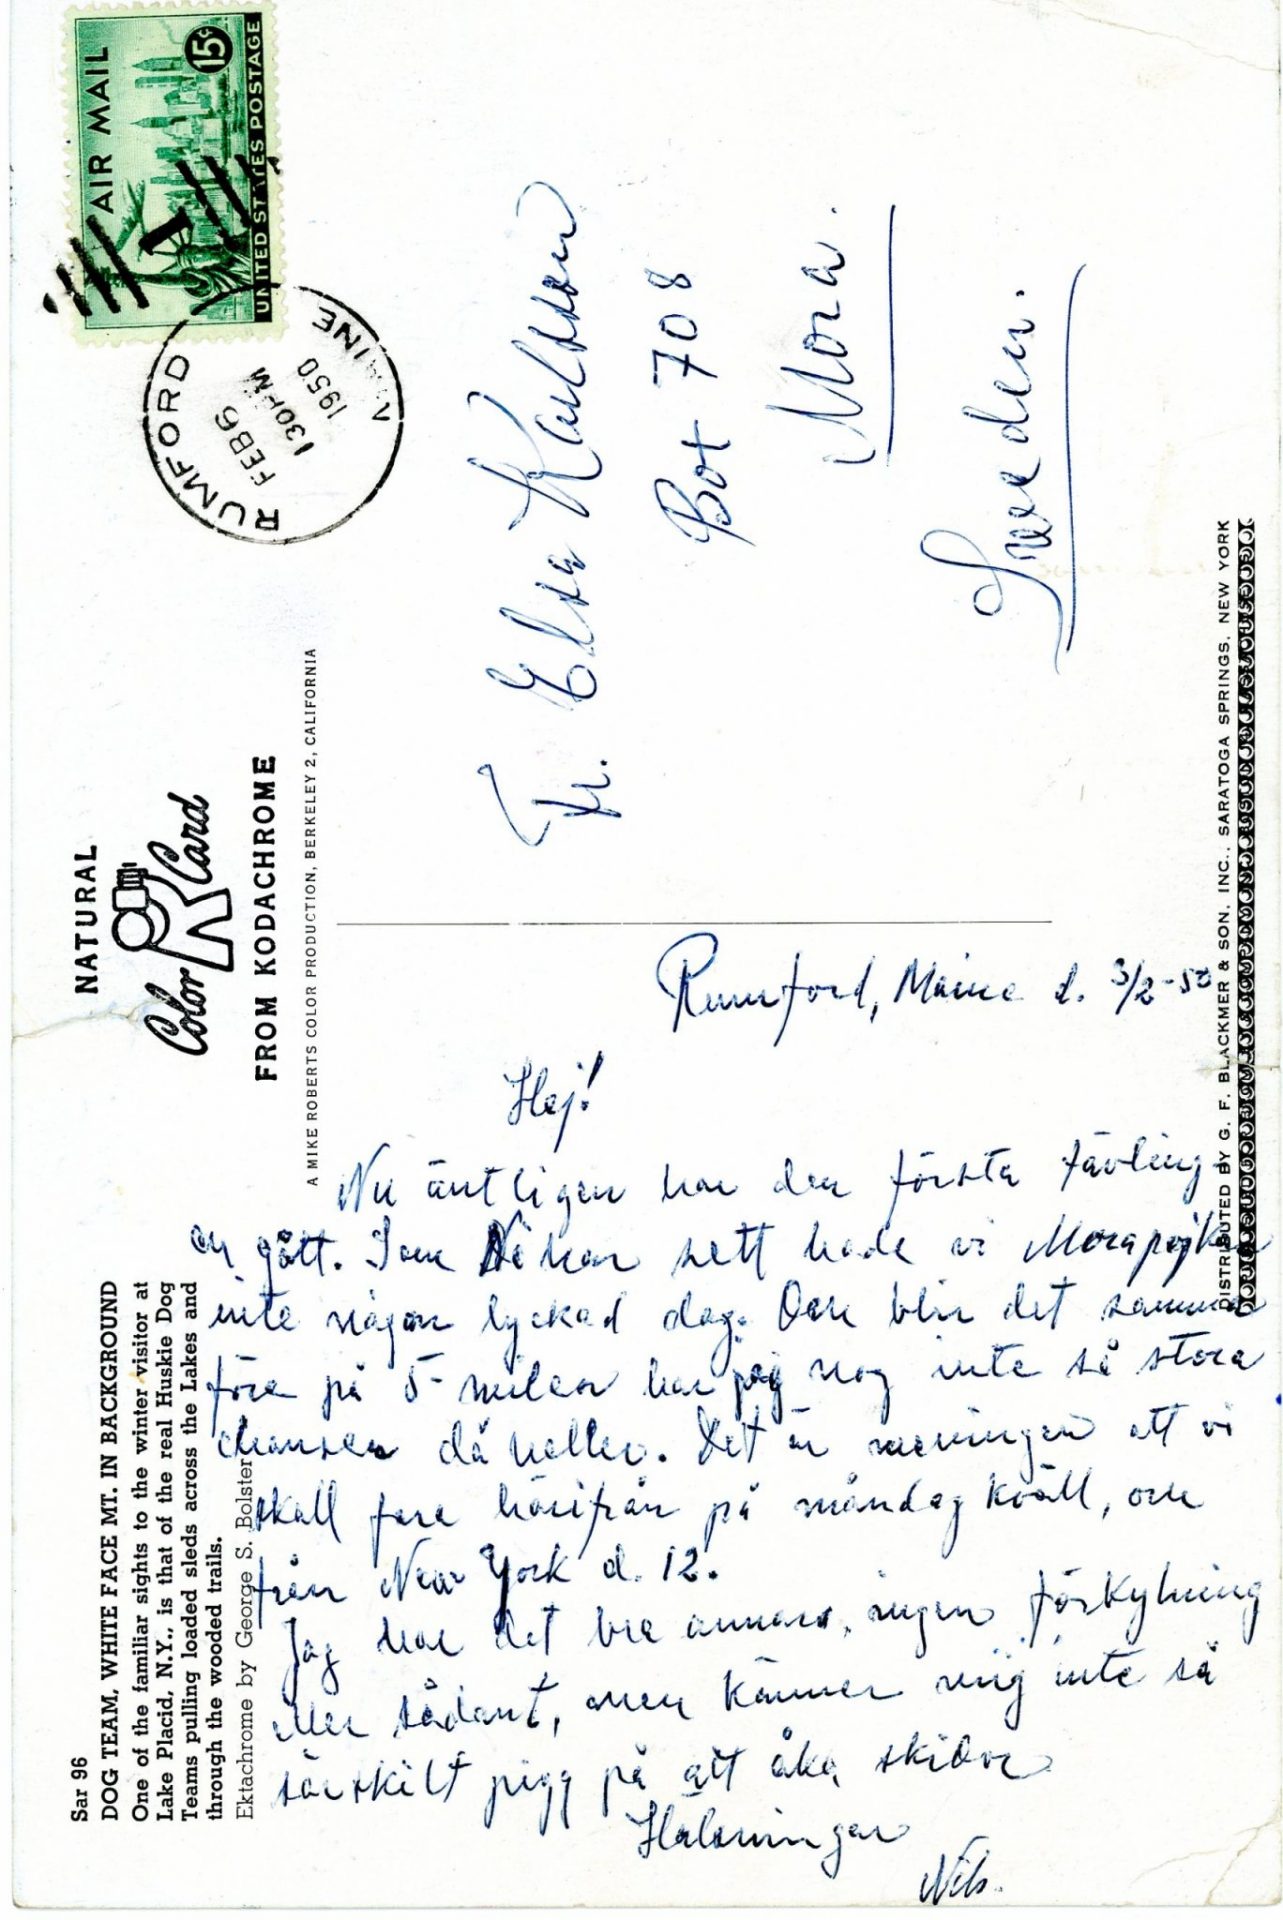 Sar 96
DOG TEAM, WHITE FACE MT. IN BACKGROUND
One of the familiar sights to the winter visitor at
Lake Placid, N.Y., is that of the real Huskie Dog
Teams pulling loaded sleds across the Lakes and
through the wooded trails.
Ektachrome by George S. Bolster
NATURAL
Color Card
FROM KODACHROME
A MIKE ROBERTS COLOR PRODUCTION, BERKELEY 2, CALIFORNIA
AIR MAIL
15¢
UNITED STATES POSTAGE
RUMFORD
FEB 6
1 30 PM
1950
MAINE
Rumford, Maine d. 3/2-50
Hej!
Nu äntligen har den första tävling-
en gått. Som Ni har sett hade vi Morapojkar
inte någon lyckad dag. Och blir det samma
före på 5-milen har jag nog inte så stora
chanser då heller. Det är meningen att vi
skall fara härifrån på måndag kväll, och
från New York d. 12.
Jag har det bra annars, ingen förkylning
eller sådant, men känner mig inte så
särskilt pigg på att åka skidor
Hälsningar
Nils.
Fr. Elsa Karlsson
Box 708
Mora.
Sweden.
DISTRIBUTED BY G. F. BLACKMER & SON, INC., SARATOGA SPRINGS, NEW YORK